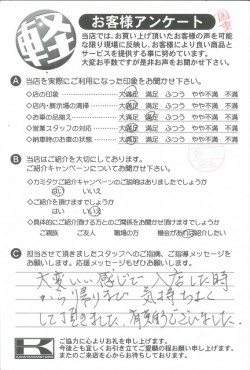 軽
お客様アンケート
当店では、お買い上げ頂いたお客様の声を可能
な限り現場に反映し、お客様により良い商品と
サービスを提供する事に努めています。
大変お手数ですが是非お声をお聞かせ下さい。
A 当店を実際にご利用になった印象をお聞かせ下さい。
◇店の印象 大満足 満足 ふつう やや不満 不満
◇店内・展示場の清掃 大満足 満足 ふつう やや不満 不満
◇お車の品揃え 大満足 満足 ふつう やや不満 不満
◇営業スタッフの対応 大満足 満足 ふつう やや不満 不満
◇納車時のお車の状態 大満足 満足 ふつう やや不満 不満
B 当店はご紹介を大切にしております。
ご紹介キャンペーンについてお聞かせ下さい。
◇カミタケご紹介キャンペーンのご説明はありましたでしょうか
はい いいえ
◇ご紹介を頂けますでしょうか
はい いいえ
◇具体的にご紹介頂ける方との関係をお聞かせ頂けますでしょうか
ご親戚 ご友人 職場の方 機会があれば紹介したい
C 担当させて頂きましたスタッフへのご指摘、ご指導メッセージを
お願いします。応援メッセージもぜひお願いします。
大変いい感じで入店した時
から帰りまで気持ちよく
して頂きました。有難うございました。
K
ご協力に心よりお礼を申し上げます。
今後とも宜しくお引き立てご愛顧の程お願い申し上げます。
またのご来店を心からお待ちしております。